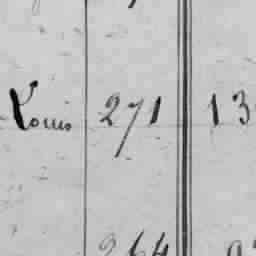 Louis 271 13
264